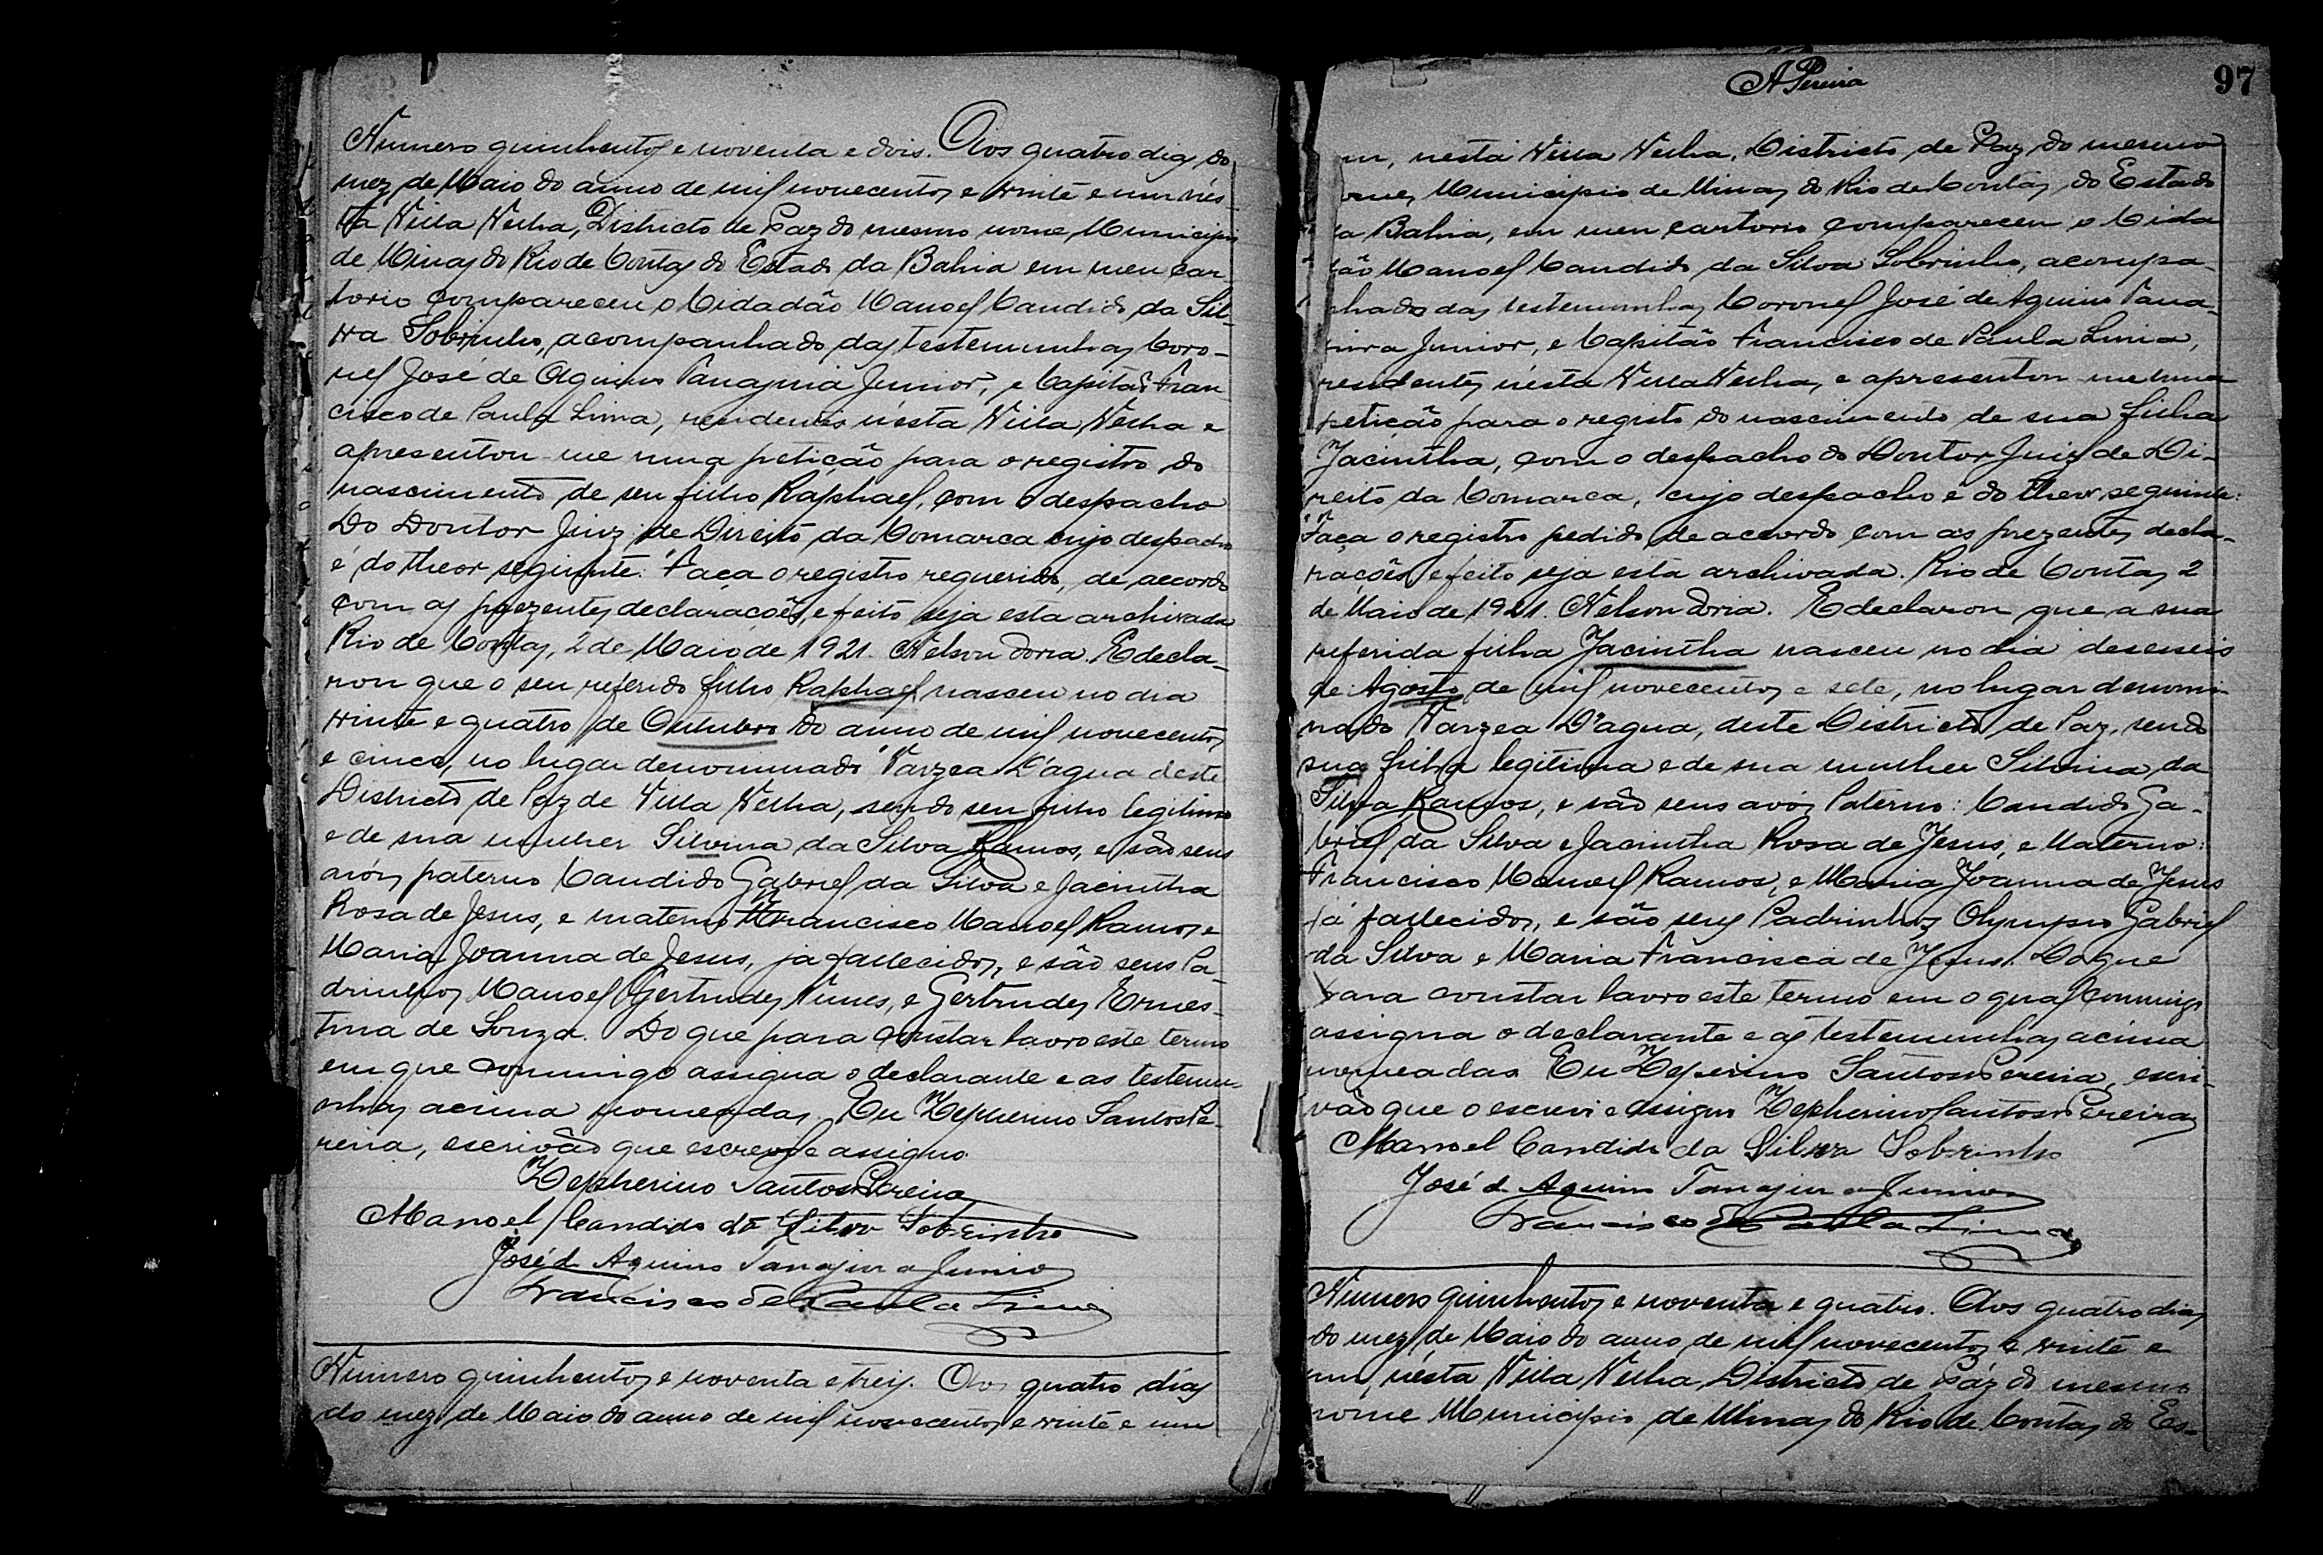 Numero quinhentos e noventa e dois. Aos quatro dias do
mez de Maio do anno de mil novecentos e vinte e um nés-
ta Villa Velha, Districto de Paz do mesmo nome, Municipio
de Minas do Rio de Contas do Estado da Bahia em meu car
torio compareceu o Cidadão Manoel Candido da Sil-
va Sobrinho, acompanhado das testemunhas Coro-
nel José de Aquino Tanajura Junior, e Capitão Fran
cisco de Paula Lima, residentes nésta Villa Velha e
apresentou-me uma petição para o registro do
nascimento de seu filho Raphael, com o despacho
Do Doutor Juiz de Direito da Comarca cujo despacho
é do theor seguinte: Faça o registro requerido, de accordo
com as prezentes declarações, e feito seja esta archivada
Rio de Contas, 2 de Maio de 1921. Nelson Doria. E decla-
rou que o seu referido filho Raphael nasceu no dia
vinte e quatro de Outubro do anno de mil novecentos
e cinco, no lugar denominado Varzea D'agua deste
Districto de Paz de Villa Velha, sendo seu filho legitimo
e de sua mulher Silvina da Silva Ramos, e são seus
avós paterno Candido Gabriel da Silva e Jacintha
Rosa de Jesus, e materno Francisco Manoel Ramos e
Maria Joanna de Jesus, já fallecidos, e são seus Pa-
drinhos Manoel Gertrudes Nunes, e Gertrudes Ernes-
tina de Souza. Do que para constar lavro este termo
em que commigo assigna o declarante e as testemu-
nhas acima nomeadas. Eu Zepherino Santos Pe-
reira, escrivão que escrevi e assigno
Zepherino Santos Pereira
Manoel Candido da Silva Sobrinho
José d Aquino Tanajura Junior
Francisco de Paula Lima
Numero quinhentos e noventa e treis. Aos quatro días
do mez de Maio do anno de mil novecentos e vinte e um
A Pereira
97
m, nesta Villa Velha, Districto de Paz do mesmo
ome, Municipio de Minas do Rio de Contas, do Estado
da Bahia, em meu cartorio compareceu o Cida
dão Manoel Candido da Silva Sobrinho, acompa-
nhado das testemunhas Coronel José de Aquino Tana-
jura Junior, e Capitão Francisco de Paula Lima,
residentes nésta Villa Velha, e apresentou-me uma
petição para o registo do nascimento de sua filha
Jacintha, com o despacho do Doutor Juiz de Di-
reito da Comarca, cujo despacho é do theor seguinte:
Faça o registro pedido, de accordo com as prezentes decla-
rações, e feito seja esta archivada. Rio de Contas, 2
de Maio de 1921. Nelson Doria. E declarou que a sua
referida filha Jacintha nasceu no dia deseseis
de Agosto de mil novecentos e sete, no lugar denomi-
nado Varzea D'agua, deste Districto de Paz, sendo
sua filha legitima e de sua mulher Silvina da
Silva Ramos, e são seus avós Paterno: Candido Ga-
briel da Silva e Jacintha Rosa de Jesus, e Materno:
Francisco Manoel Ramos, e Maria Joanna de Jesus
já fallecidos, e são seus Padrinhos Olympio Gabriel
da Silva e Maria Francisca de Jesus. Do que
para constar lavro este termo em o qual commigo
assigna o declarante e as testemunhas acima
nomeadas Eu Zeferino Santos Pereira, escri-
vão que o escrevi e assigno Zepherino Santos Pereira
Manoel Candido da Silva Sobrinho
José d Aquino Tanajura Junior
Francisco de Paula Lima
Numero quinhentos e noventa e quatro. Aos quatro dias
do mez de Maio do anno de mil novecentos e vinte e
um, nésta Villa Velha, Districto de Páz do mesmo
nome Municipio de Minas do Rio de Contas do Es-